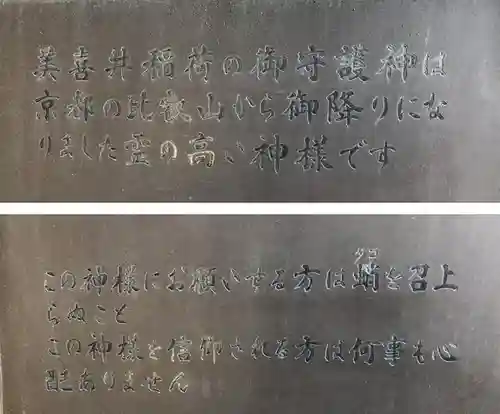 美喜井稲荷の御守護神は
京都の比叡山から御降りにな
りました霊の高い神様です
この神様にお願いせる方は蛸を召上
タコ
らぬこと
この神様を信仰される方は何事も心
配ありません